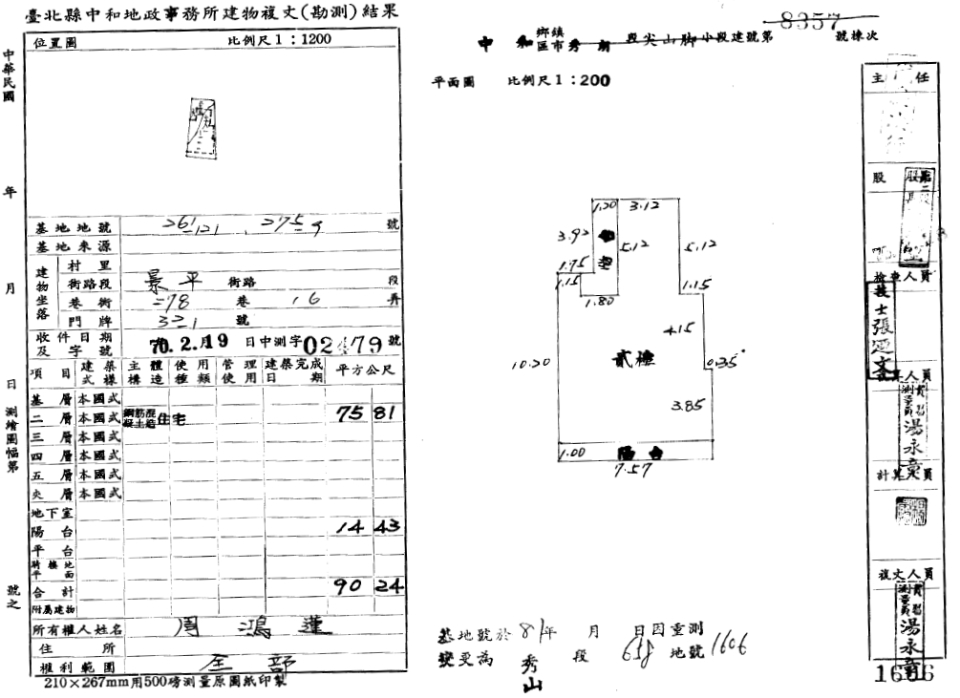 臺北縣中和地政事務所建物複丈(勘測)結果
中華民國 年 月 日 測繪圖幅第 號之
位置圖 比例尺1:1200
基地地號 261-121、275-9 號
基地來源
建物坐落
村里
街路段 景平 街路 段
巷衖 278 巷 16 弄
門牌 號
收件日期及字號 70.2.19 日中測字02479號
項目 建築式樣 主體構造 使用種類 管理使用 建築完成日期 平方公尺
基層 本國式
二層 本國式 鋼筋混凝土造 住宅 75 81
三層 本國式
四層 本國式
五層 本國式
夾層 本國式
地下室
陽台 14 43
平台
騎樓地平面
合計 90 24
附屬建物
所有權人姓名 周鴻蓮
住所
權利範圍 全部
210×267mm用500磅測量原圖紙印製
中和 鄉鎮區市 秀朗 段尖山脚小段建號第 8357 號棟次
平面圖 比例尺1:200
1.20 3.12
3.92
5.12 5.12
1.75
1.15 1.15
1.80
4.15
10.20 貳樓 0.35
3.85
1.00 陽台
7.57
基地號於81年 月 日因重測
變更為 秀山 段 658 地號 1606
主任
股
檢查人員
技士張
計算人員
測量員 湯永章
複丈人員
測量員 湯永章
1606